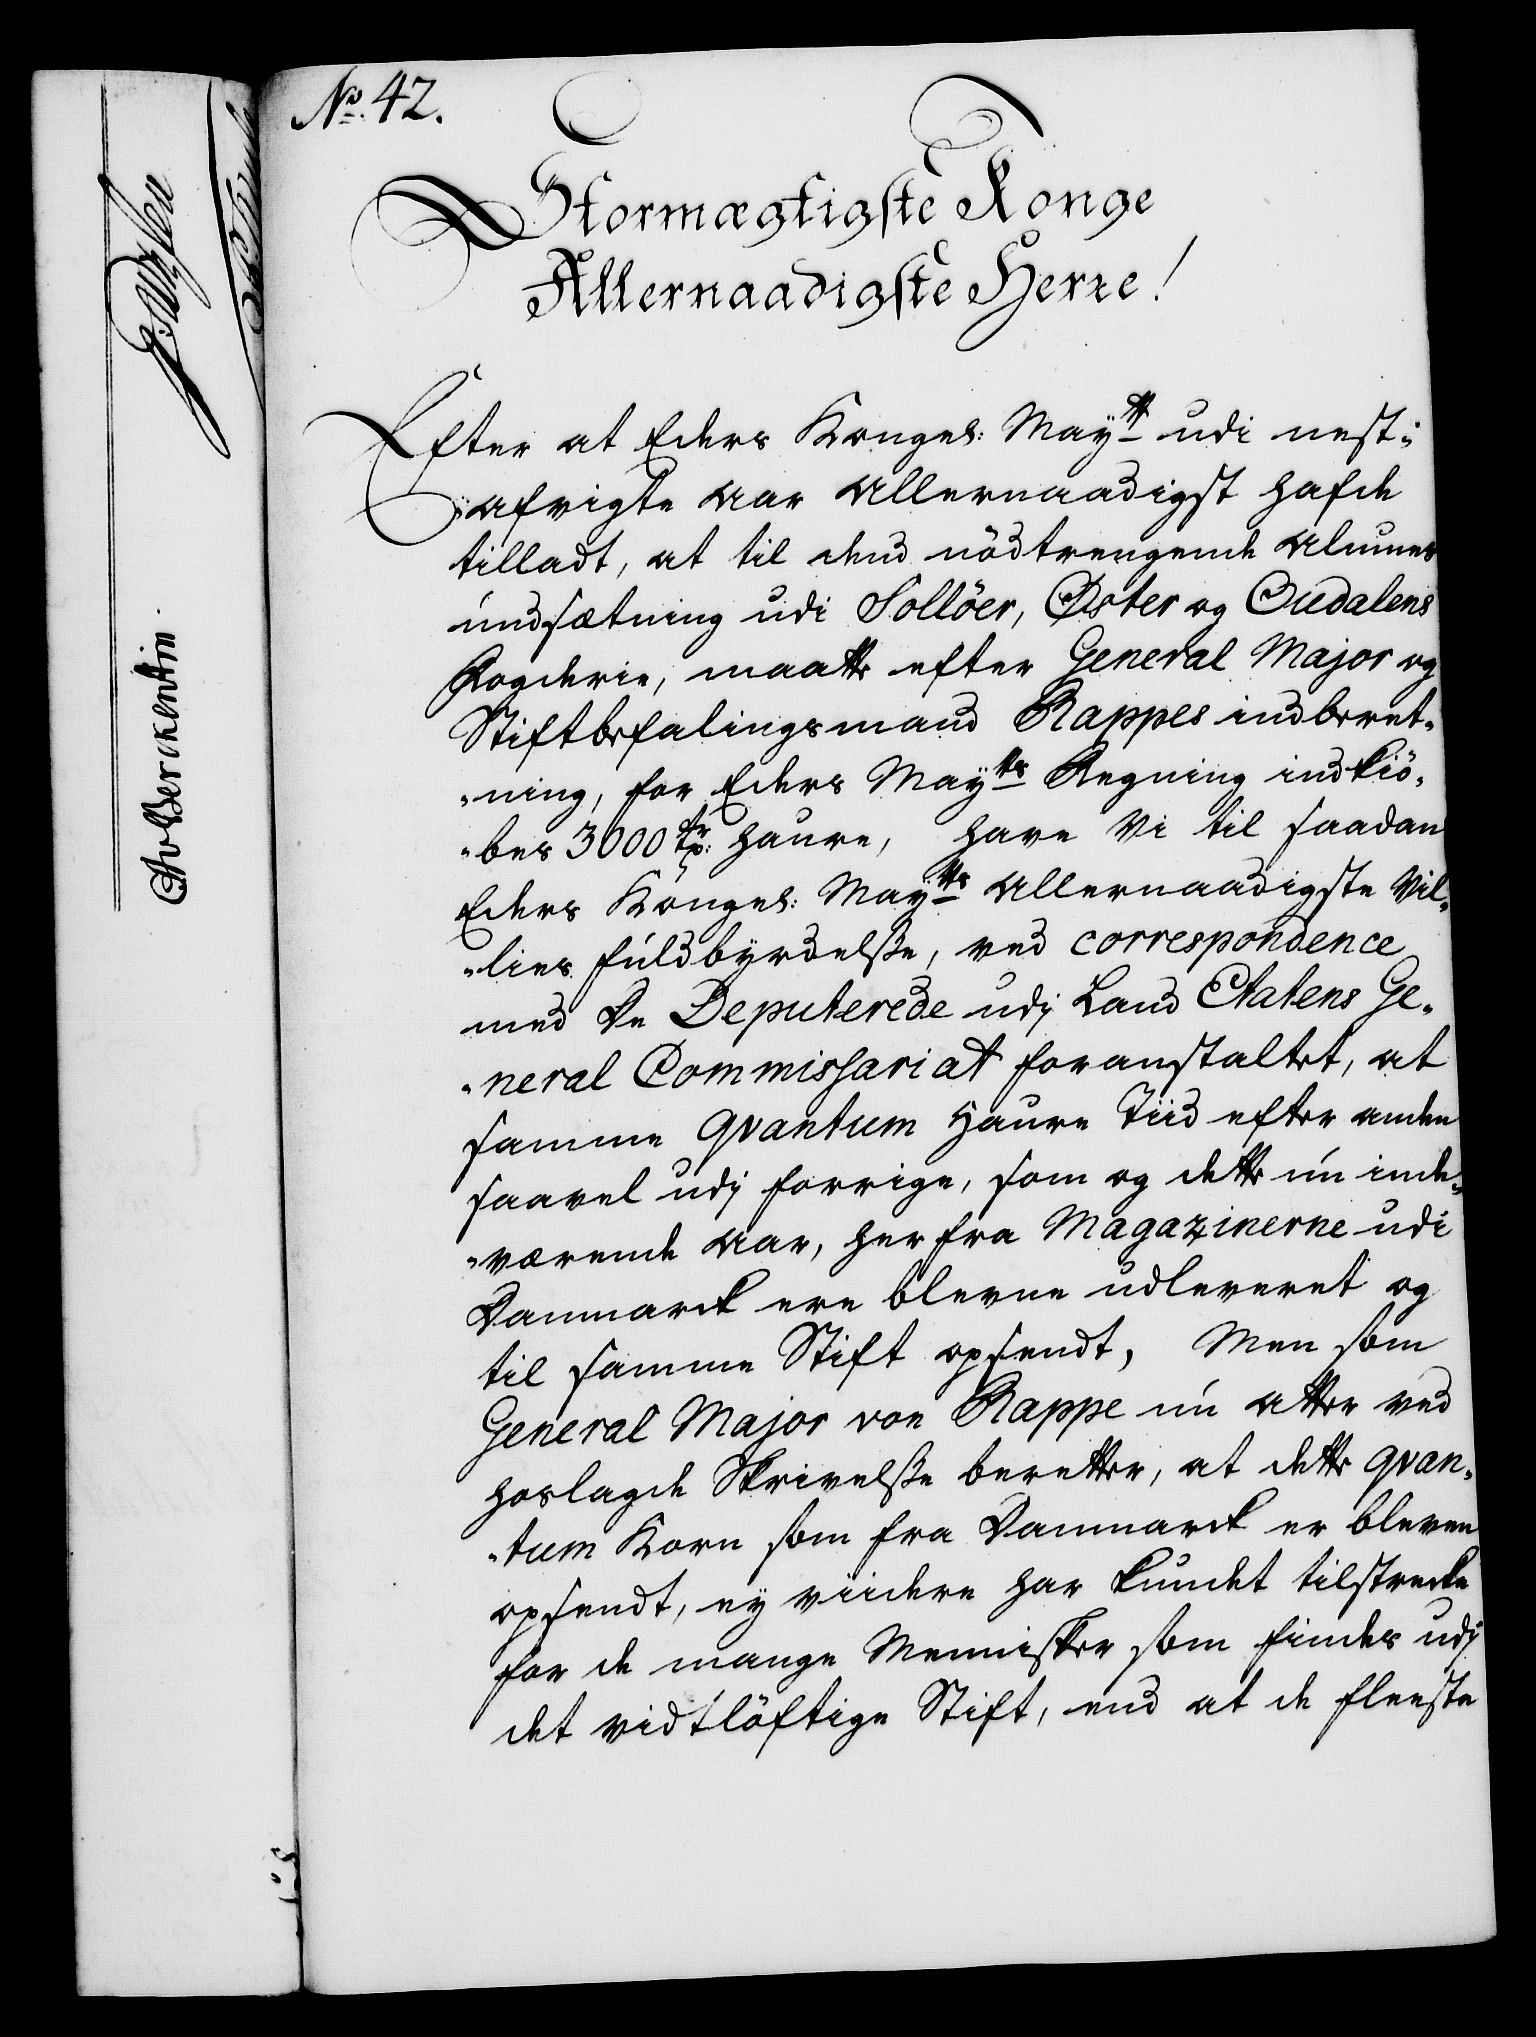 No. 42.
Stormægtigste Konge
Allernaadigste Herre!
Efter at Eders Kongel: Maytt udi nest-
-afvigte Aar Allernaadigst hafde
tilladt, at til dend nödtrengende Almues
undsætning udi Sollöer, Öster og Oudalens
Fogderie, maatte efter General Major og
Stiftbefalingsmand Rappes indberet-
-ning, for Eders Maytts Regning indkiö-
-bes 3000 tr: haure, have Vi til saadan
Eders Kongel: Maytts Allernaadigste Vil-
-lies fuldbyrdelsse, ved correspondence
med De Deputerede udj Land Etatens Ge-
-neral Commissariat foranstaltet, at
samme qvantum Haure Tiid efter anden
saavel udj forrige, som og dette nu inde-
-værende Aar, her fra Magazinerne udi
Danmarck ere blevne udleveret og
til samme Stift opsendt, Men som
General Major von Rappe nu atter ved
hoslagde Skrivelsse beretter, at dette qvan-
-tum Korn som fra Danmarck er bleven
opsendt, ey viidere har kundet tilstrecke
for de mange Mennisker som findes udj
det vidtlöftige Stift, end at de fleeste
Berckentin